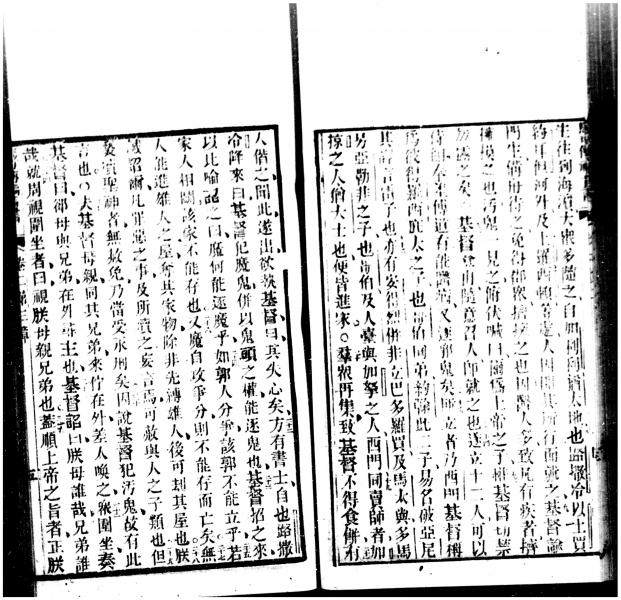 生往到海濱大衆多隨之自如利猶太地也路撒冷以土買
約耳但河外及土羅西頓等處人因聞其所行而就之基督諭
門生備舟待之免得衆擠擁之也因醫人多致凡有疾者擠
擁摸之也汚鬼一見之俯伏喊曰爾爲上帝之子惟基督切禁
勿露之矣○基督登山隨意召人即就之也遂立十二人可以
侍祖奉差傳道有能醫病又逐邪鬼矣所立者乃西門基督稱
爲彼得羅西庇太之子也耶伯同弟約翰此二子易名破亞尼
其言雷子也亦有安得烈併非立巴多羅買及馬太與多馬
另亞勒非之子也耶伯及人臺與加拏之人西門同賣師者加
掠之人猶大士也便皆進家○羣衆再集致基督不得食併有
人偕之聞此遂出欲執基督曰其失心矣方有書士自也路撒
冷降來曰基督犯魔鬼併以鬼頭之權能逐鬼也基督招之來
以比喻詔之曰魔何能逐魔乎如郭人分爭該郭不能立乎若
家人相鬬該家不能存也又魔自攻爭分則不能存而亡矣無
人能進雄人之屋奪其家物除非先縛雄人後可刦其屋也朕
誠詔爾凡罪惡之事及所瀆之妄言焉可赦與人之子類也但
凡瀆聖神者無赦免乃當受永刑矣因說基督犯汚鬼故有此
言也○夫基督母親同其兄弟來佇在外差人喚之衆圍坐奏
基督曰郤母與兄弟在外尋主也基督詔曰朕母誰哉兄弟誰
哉就周視圍坐者曰視朕母親兄弟也蓋順上帝之旨者正朕
卷二第三章
五